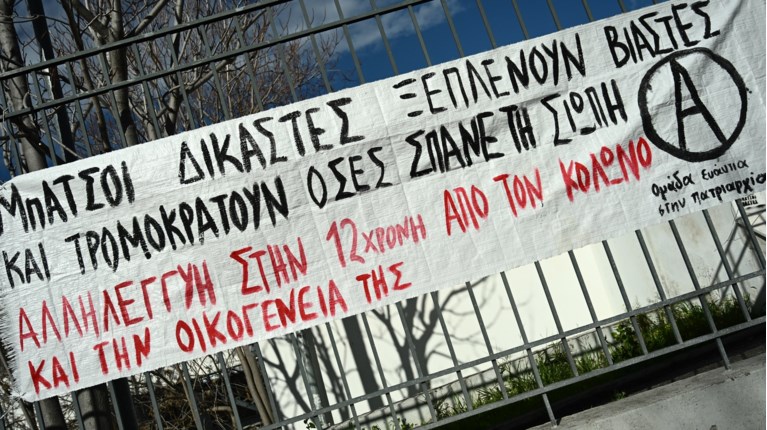 ΜΠΑΤΣΟΙ ΔΙΚΑΣΤΕΣ ΞΕΠΛΕΝΟΥΝ ΒΙΑΣΤΕΣ
ΚΑΙ ΤΡΟΜΟΚΡΑΤΟΥΝ ΟΣΕΣ ΣΠΑΝΕ ΤΗ ΣΙΩΠΗ
ΑΛΛΗΛΕΓΓΥΗ ΣΤΗΝ 12ΧΡΟΝΗ ΑΠΟ ΤΟΝ ΚΟΛΩΝΟ
ΚΑΙ ΤΗΝ ΟΙΚΟΓΕΝΕΙΑ ΤΗΣ
A
Ομάδα ενάντια
στην πατριαρχία